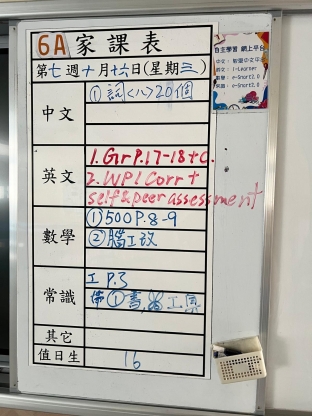 6A 家課表
第七週十月十六日(星期三)
中文
①詞<八>20個
英文
1. Gr P.17-18 + c.
2. WP1 Corr +
self & peer assessment
數學
①500 P.8-9
②腦工改
常識
工 P.3
其它
值日生
16
自主學習 網上平台
i-Learner
e-Smart2.0
e-Smart2.0